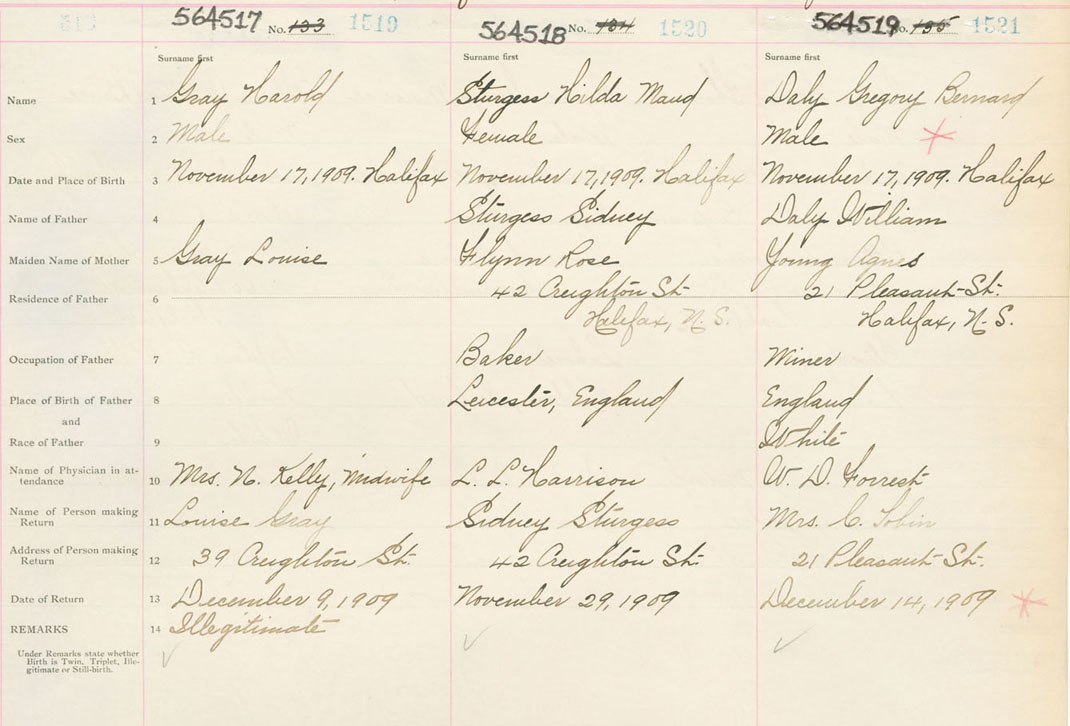 564517 No. 133 1519 564518 No. 134 1520 564519 No. 135 1521
Surname first Surname first Surname first
Name 1 Gray Harold Sturgess Hilda Maud Daly Gregory Bernard
Sex 2 Male Female Male
Date and Place of Birth 3 November 17, 1909. Halifax November 17, 1909. Halifax November 17, 1909. Halifax
Name of Father 4 Sturgess Sidney Daly William
Maiden Name of Mother 5 Gray Louise Flynn Rose Young Agnes
Residence of Father 6 42 Creighton St. 21 Pleasant St.
Halifax, N. S. Halifax, N. S.
Occupation of Father 7 Baker Miner
Place of Birth of Father 8 Leicester, England England
and
Race of Father 9 White
Name of Physician in at-
tendance 10 Mrs. N. Kelly, Midwife L. L. Harrison W. D. Forrest
Name of Person making
Return 11 Louise Gray Sidney Sturgess Mrs. C. Tobin
Address of Person making
Return 12 39 Creighton St. 42 Creighton St. 21 Pleasant St.
Date of Return 13 December 9, 1909 November 29, 1909 December 14, 1909
REMARKS 14 Illegitimate
Under Remarks state whether
Birth is Twin, Triplet, Ille-
gitimate or Still-birth.